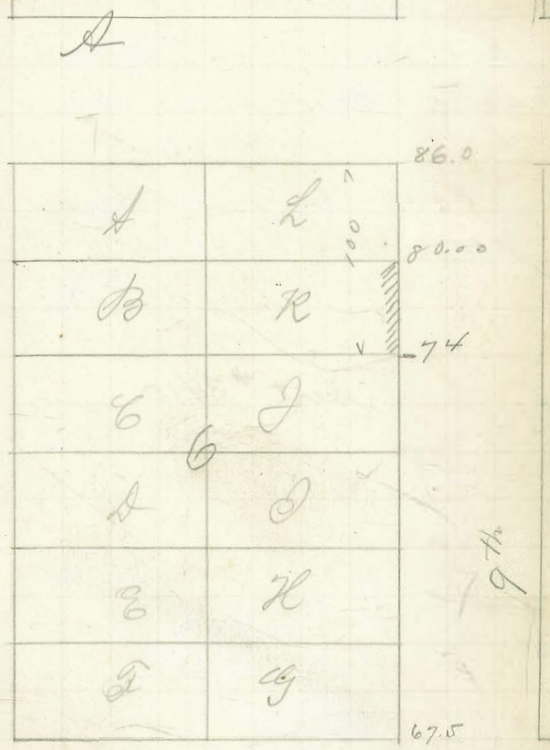 A
86.0
A L 100
80.00
B K
74
C J
6
D I
9th
E H
F G
67.5